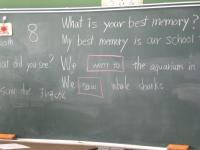 8 What is your best memory?
My best memory is our school
What did you see? We went to the aquarium in
We saw whale sharks